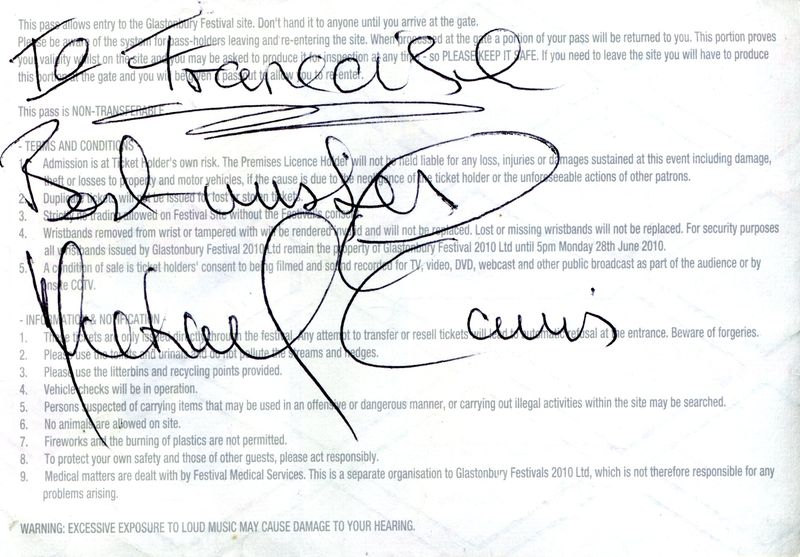 This pass allows entry to the Glastonbury Festival site. Don't hand it to anyone until you arrive at the gate.
To Francoise
Please be aware of the system for pass-holders leaving and re-entering the site. When processed at the gate a portion of your pass will be returned to you. This portion proves
your validity whilst on the site and you may be asked to produce it for inspection at any time - so PLEASE KEEP IT SAFE. If you need to leave the site you will have to produce
this portion at the gate and you will be given a passout to allow you to re-enter.
This pass is NON-TRANSFERABLE
- TERMS AND CONDITIONS -
Best wishes
1. Admission is at Ticket Holder's own risk. The Premises Licence Holder will not be held liable for any loss, injuries or damages sustained at this event including damage,
theft or losses to property and motor vehicles, if the cause is due to the negligence of the ticket holder or the unforeseeable actions of other patrons.
2. Duplicate tickets will not be issued for lost or stolen tickets.
3. Strictly no trading allowed on Festival Site without the Festival's consent.
4. Wristbands removed from wrist or tampered with will be rendered invalid and will not be replaced. Lost or missing wristbands will not be replaced. For security purposes
all wristbands issued by Glastonbury Festival 2010 Ltd remain the property of Glastonbury Festival 2010 Ltd until 5pm Monday 28th June 2010.
5. A condition of sale is ticket holders' consent to being filmed and sound recorded for TV, video, DVD, webcast and other public broadcast as part of the audience or by
onsite CCTV.
Michael Eavis
- INFORMATION & NOTIFICATION -
1. These tickets are only issued directly through the festival. Any attempt to transfer or resell tickets will lead to automatic refusal at the entrance. Beware of forgeries.
2. Please use the toilets and urinals and do not pollute the streams and hedges.
3. Please use the litterbins and recycling points provided.
4. Vehicle checks will be in operation.
5. Persons suspected of carrying items that may be used in an offensive or dangerous manner, or carrying out illegal activities within the site may be searched.
6. No animals are allowed on site.
7. Fireworks and the burning of plastics are not permitted.
8. To protect your own safety and those of other guests, please act responsibly.
9. Medical matters are dealt with by Festival Medical Services. This is a separate organisation to Glastonbury Festivals 2010 Ltd, which is not therefore responsible for any
problems arising.
WARNING: EXCESSIVE EXPOSURE TO LOUD MUSIC MAY CAUSE DAMAGE TO YOUR HEARING.